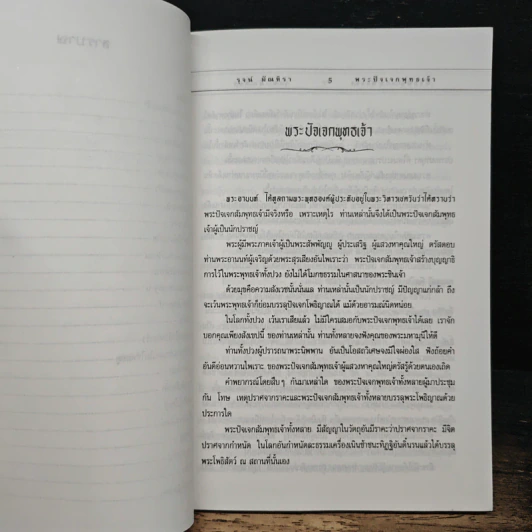 สารบาญ
รุจน์ มัณฑิรา 5 พระปัจเจกพุทธเจ้า
พระปัจเจกพุทธเจ้า
พระอานนท์ ได้ทูลถามพระพุทธองค์ผู้ประทับอยู่ในพระวิหารเชตวันว่าได้ทราบว่า
พระปัจเจกสัมพุทธเจ้ามีจริงหรือ เพราะเหตุไร ท่านเหล่านั้นจึงได้เป็นพระปัจเจกสัมพุทธ
เจ้าผู้เป็นนักปราชญ์
พระผู้มีพระภาคเจ้าผู้เป็นพระสัพพัญญู ผู้ประเสริฐ ผู้แสวงหาคุณใหญ่ ตรัสตอบ
ท่านพระอานนท์ผู้เจริญด้วยพระสุรเสียงอันไพเราะว่า พระปัจเจกสัมพุทธเจ้าสร้างบุญญาธิ
การไว้ในพระพุทธเจ้าทั้งปวง ยังไม่ได้โมกขธรรมในศาสนาของพระชินเจ้า
ด้วยมุขคือความสังเวชนั้นนั่นแล ท่านเหล่านั้นเป็นนักปราชญ์ มีปัญญาแก่กล้า ถึง
จะเว้นพระพุทธเจ้าก็ย่อมบรรลุปัจเจกโพธิญาณได้ แม้ด้วยอารมณ์นิดหน่อย
ในโลกทั้งปวง เว้นเราเสียแล้ว ไม่มีใครเสมอกับพระปัจเจกพุทธเจ้าได้เลย เราจัก
บอกคุณเพียงสังเขปนี้ ของท่านเหล่านั้น ท่านทั้งหลายจงฟังคุณของพระมหามุนีให้ดี
ท่านทั้งปวงผู้ปรารถนาพระนิพพาน อันเป็นโอสถวิเศษจงมีใจผ่องใส ฟังถ้อยคำ
อันดีอ่อนหวานไพเราะ ของพระปัจเจกสัมพุทธเจ้าผู้แสวงหาคุณใหญ่ตรัสรู้ด้วยตนเองเถิด
คำพยากรณ์โดยสืบๆ กันมาเหล่าใด ของพระปัจเจกพุทธเจ้าทั้งหลายผู้มาประชุม
กัน โทษ เหตุปราศจากราคะและพระปัจเจกสัมพุทธเจ้าทั้งหลายบรรลุพระโพธิญาณด้วย
ประการใด
พระปัจเจกสัมพุทธเจ้าทั้งหลาย มีสัญญาในวัตถุอันมีราคะว่าปราศจากราคะ มีจิต
ปราศจากกำหนัด ในโลกอันกำหนัดละธรรมเครื่องเนิ่นช้าชนะทิฏฐิอันดิ้นรนแล้วได้บรรลุ
พระโพธิสัตว์ ณ สถานที่นั้นเอง